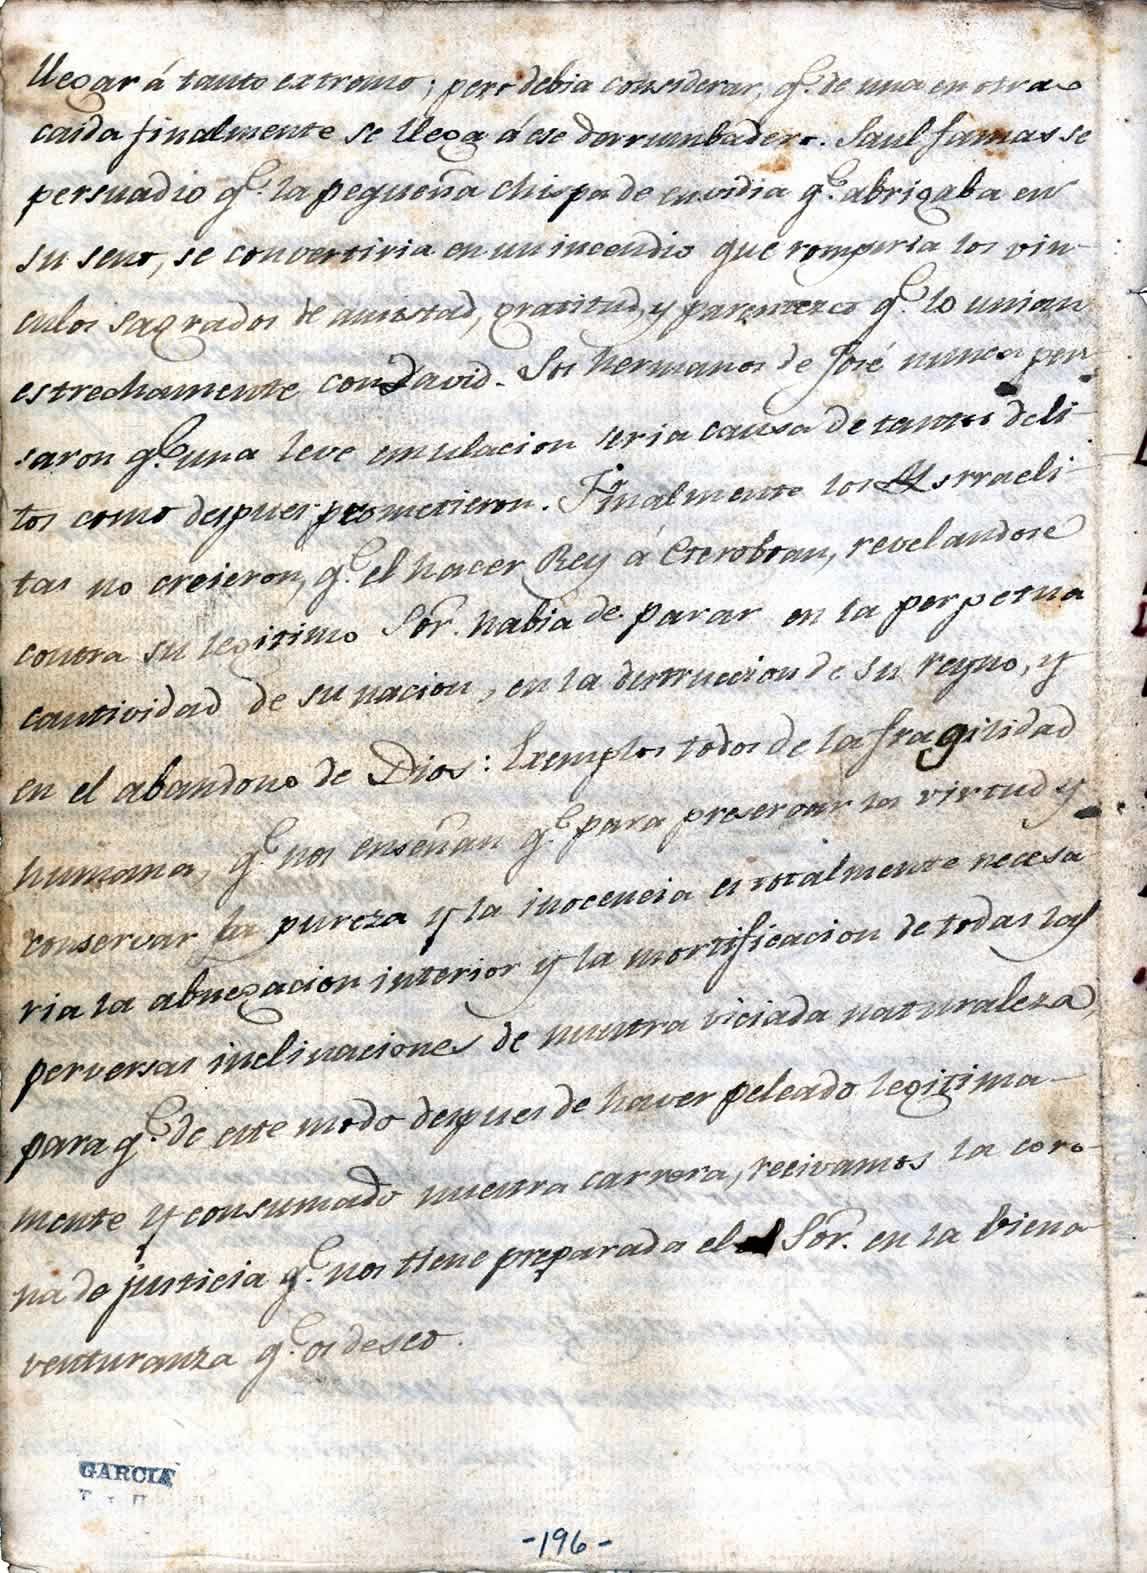 llegar á tanto extremo; pero debia considerar, q.e de una en otra
caida finalmente se llega á ese derrumbadero. Saul jamas se
persuadio q.e la pequeña chispa de envidia q.e abrigaba en
su seno, se convertiria en un incendio que romperia los vin-
culos sagrados de amistad, gratitud, y parentezco q.e lo unian
estrechamente con David. Los hermanos de José nunca pen
saron q.e una leve emulacion seria causa de tantos deli-
tos como despues cometieron. Finalmente los Ysrraeli-
tas no creieron, q.e el hacer Rey á revelandose
contra su legitimo Sor. habia de parar en la perpetua
cautividad de su nacion, en la destruccion de su reyno, y
en el abandono de Dios: Exemplos todos de la fragilidad
humana, q.e nos enseñan q.e para preservar la virtud y
conservar la pureza y la inocencia es totalmente necesa
ria la abnegacion interior y la mortificacion de todas las
perversas inclinaciones de nuestra viciada naturaleza,
para q.e de este modo despues de haver peleado legitima-
mente y consumado nuestra carrera, recivamos la coro-
na de justicia q.e nos tiene preparada el Sor. en la biena
venturanza q.e os deseo.
GARCIA
-196-